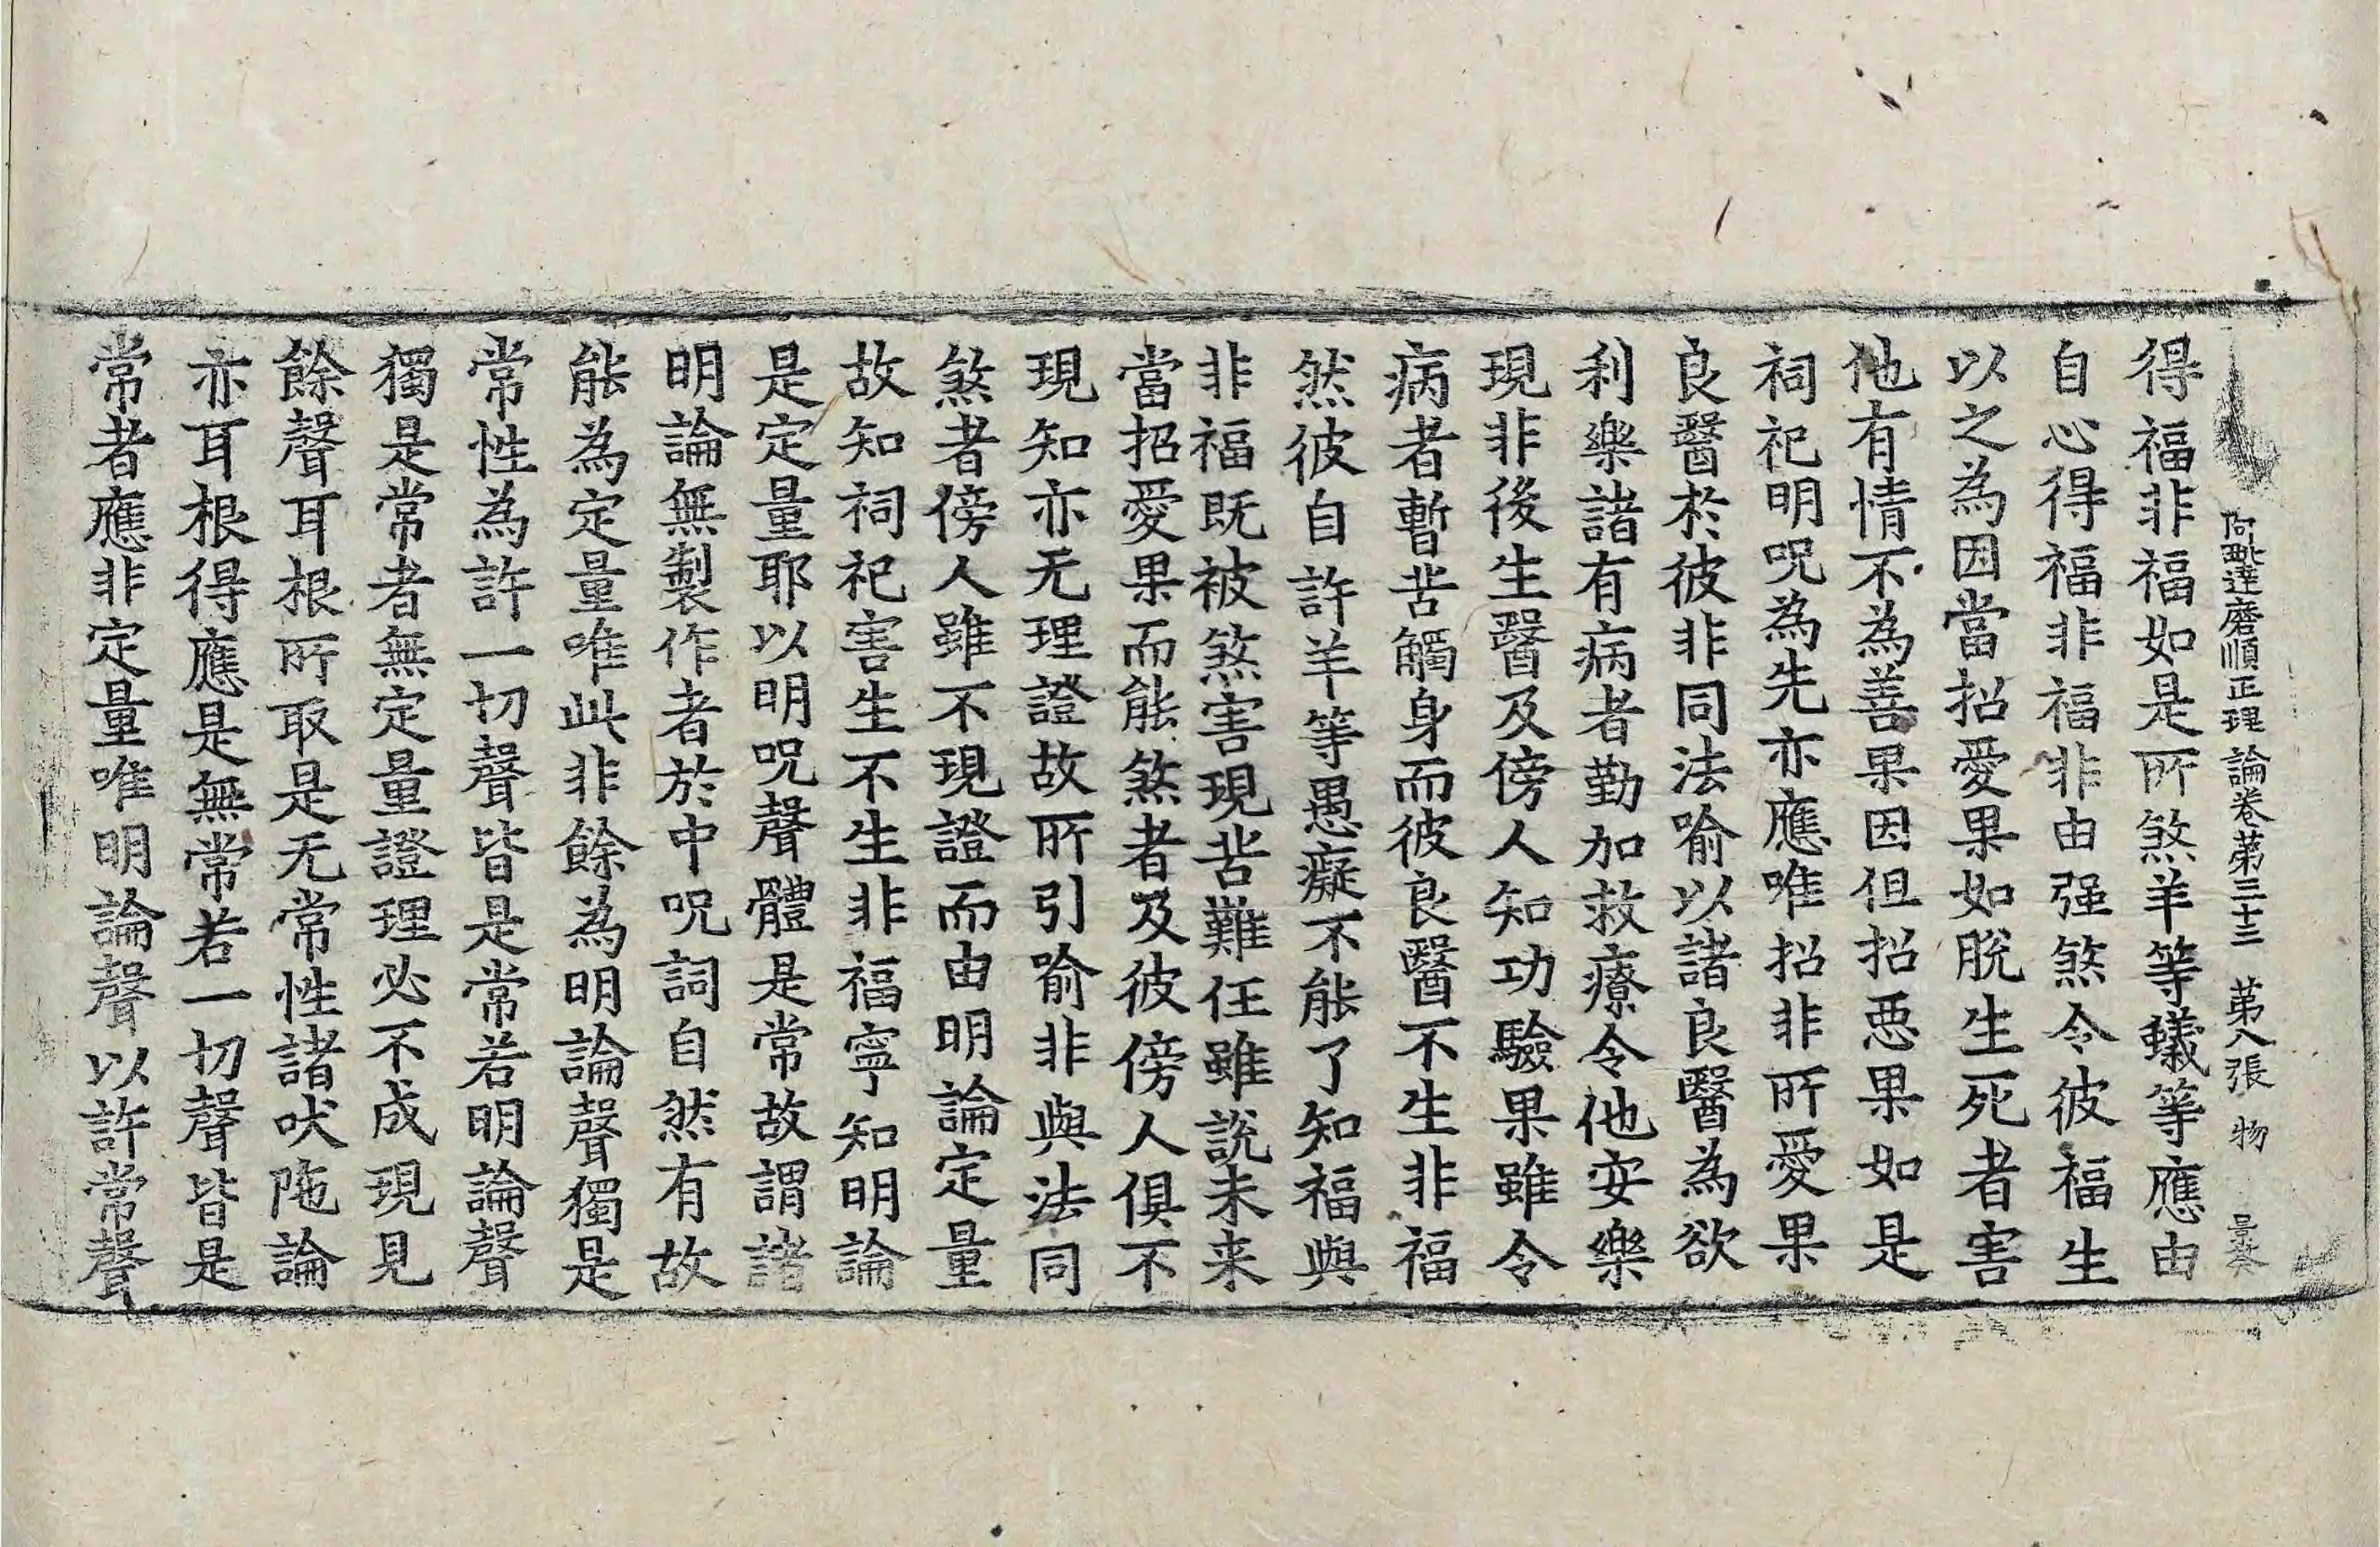 阿毗達磨順正理論卷第三十三 第八張 物
得福非福如是所煞羊等蟻等應由
自心得福非福非由强煞令彼福生
以之為因當招愛果如脫生死者害
他有情不為善果因但招惡果如是
祠祀明呪為先亦應唯招非所愛果
良醫於彼非同法喻以諸良醫為欲
利樂諸有病者勤加救療令他安樂
現非後生醫及傍人知功驗果雖令
病者暫苦觸身而彼良醫不生非福
然彼自許羊等愚癡不能了知福與
非福既被煞害現苦難任雖說未来
當招愛果而能煞者及彼傍人俱不
現知亦无理證故所引喻非與法同
煞者傍人雖不現證而由明論定量
故知祠祀害生不生非福寧知明論
是定量耶以明呪聲體是常故謂諸
明論無製作者於中呪詞自然有故
能為定量唯此非餘為明論聲獨是
常性為許一切聲皆是常若明論聲
獨是常者無定量證理必不成現見
餘聲耳根所取是无常性諸吠陁論
亦耳根得應是無常若一切聲皆是
常者應非定量唯明論聲以許常聲